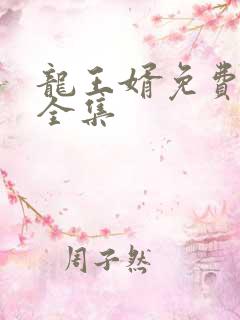 龍王婿免費
全集
周子然